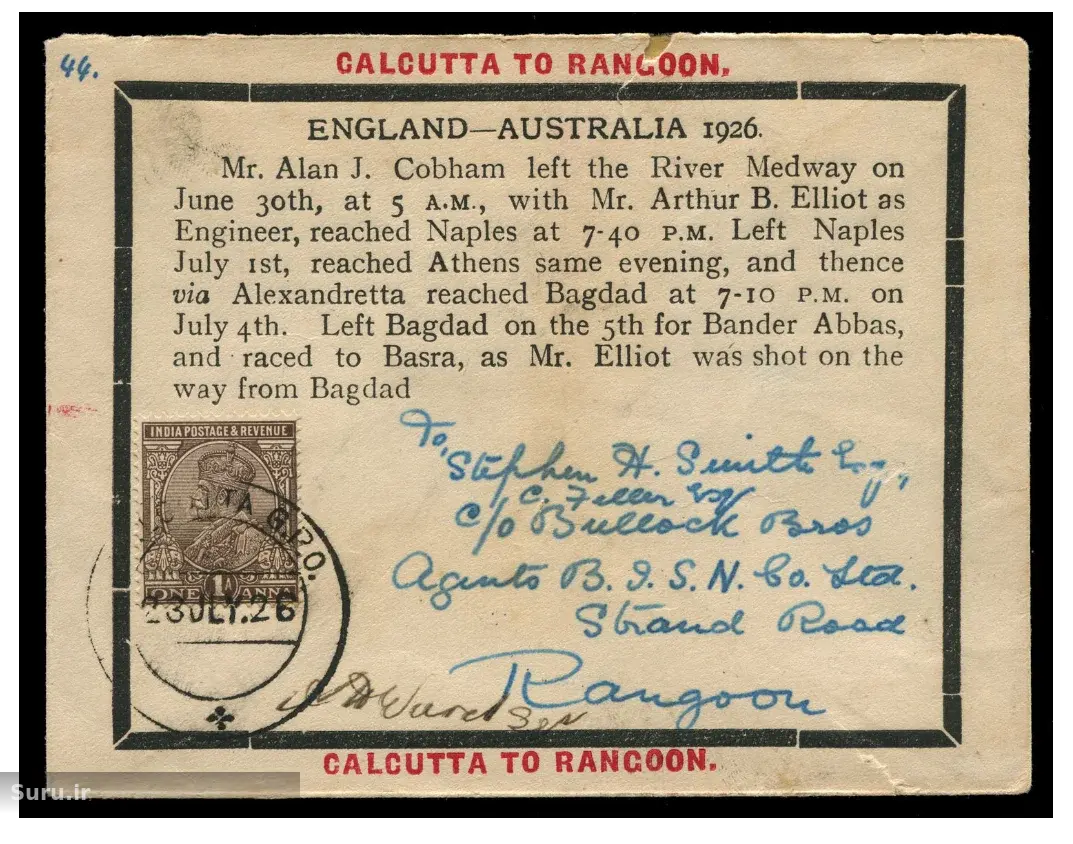 44.
CALCUTTA TO RANGOON.
ENGLAND—AUSTRALIA 1926.
Mr. Alan J. Cobham left the River Medway on
June 30th, at 5 A.M., with Mr. Arthur B. Elliot as
Engineer, reached Naples at 7-40 P.M. Left Naples
July 1st, reached Athens same evening, and thence
via Alexandretta reached Bagdad at 7-10 P.M. on
July 4th. Left Bagdad on the 5th for Bander Abbas,
and raced to Basra, as Mr. Elliot was shot on the
way from Bagdad
INDIA POSTAGE & REVENUE
1A
ONE ANNA
TA G.P.O.
23JLY.26
To,
Stephen H. Smith Esq,
C. Feller Esq
c/o Bullock Bros
Agents B. I. S. N. Co. Ltd.
Strand Road
Rangoon
CALCUTTA TO RANGOON.
Suru.ir